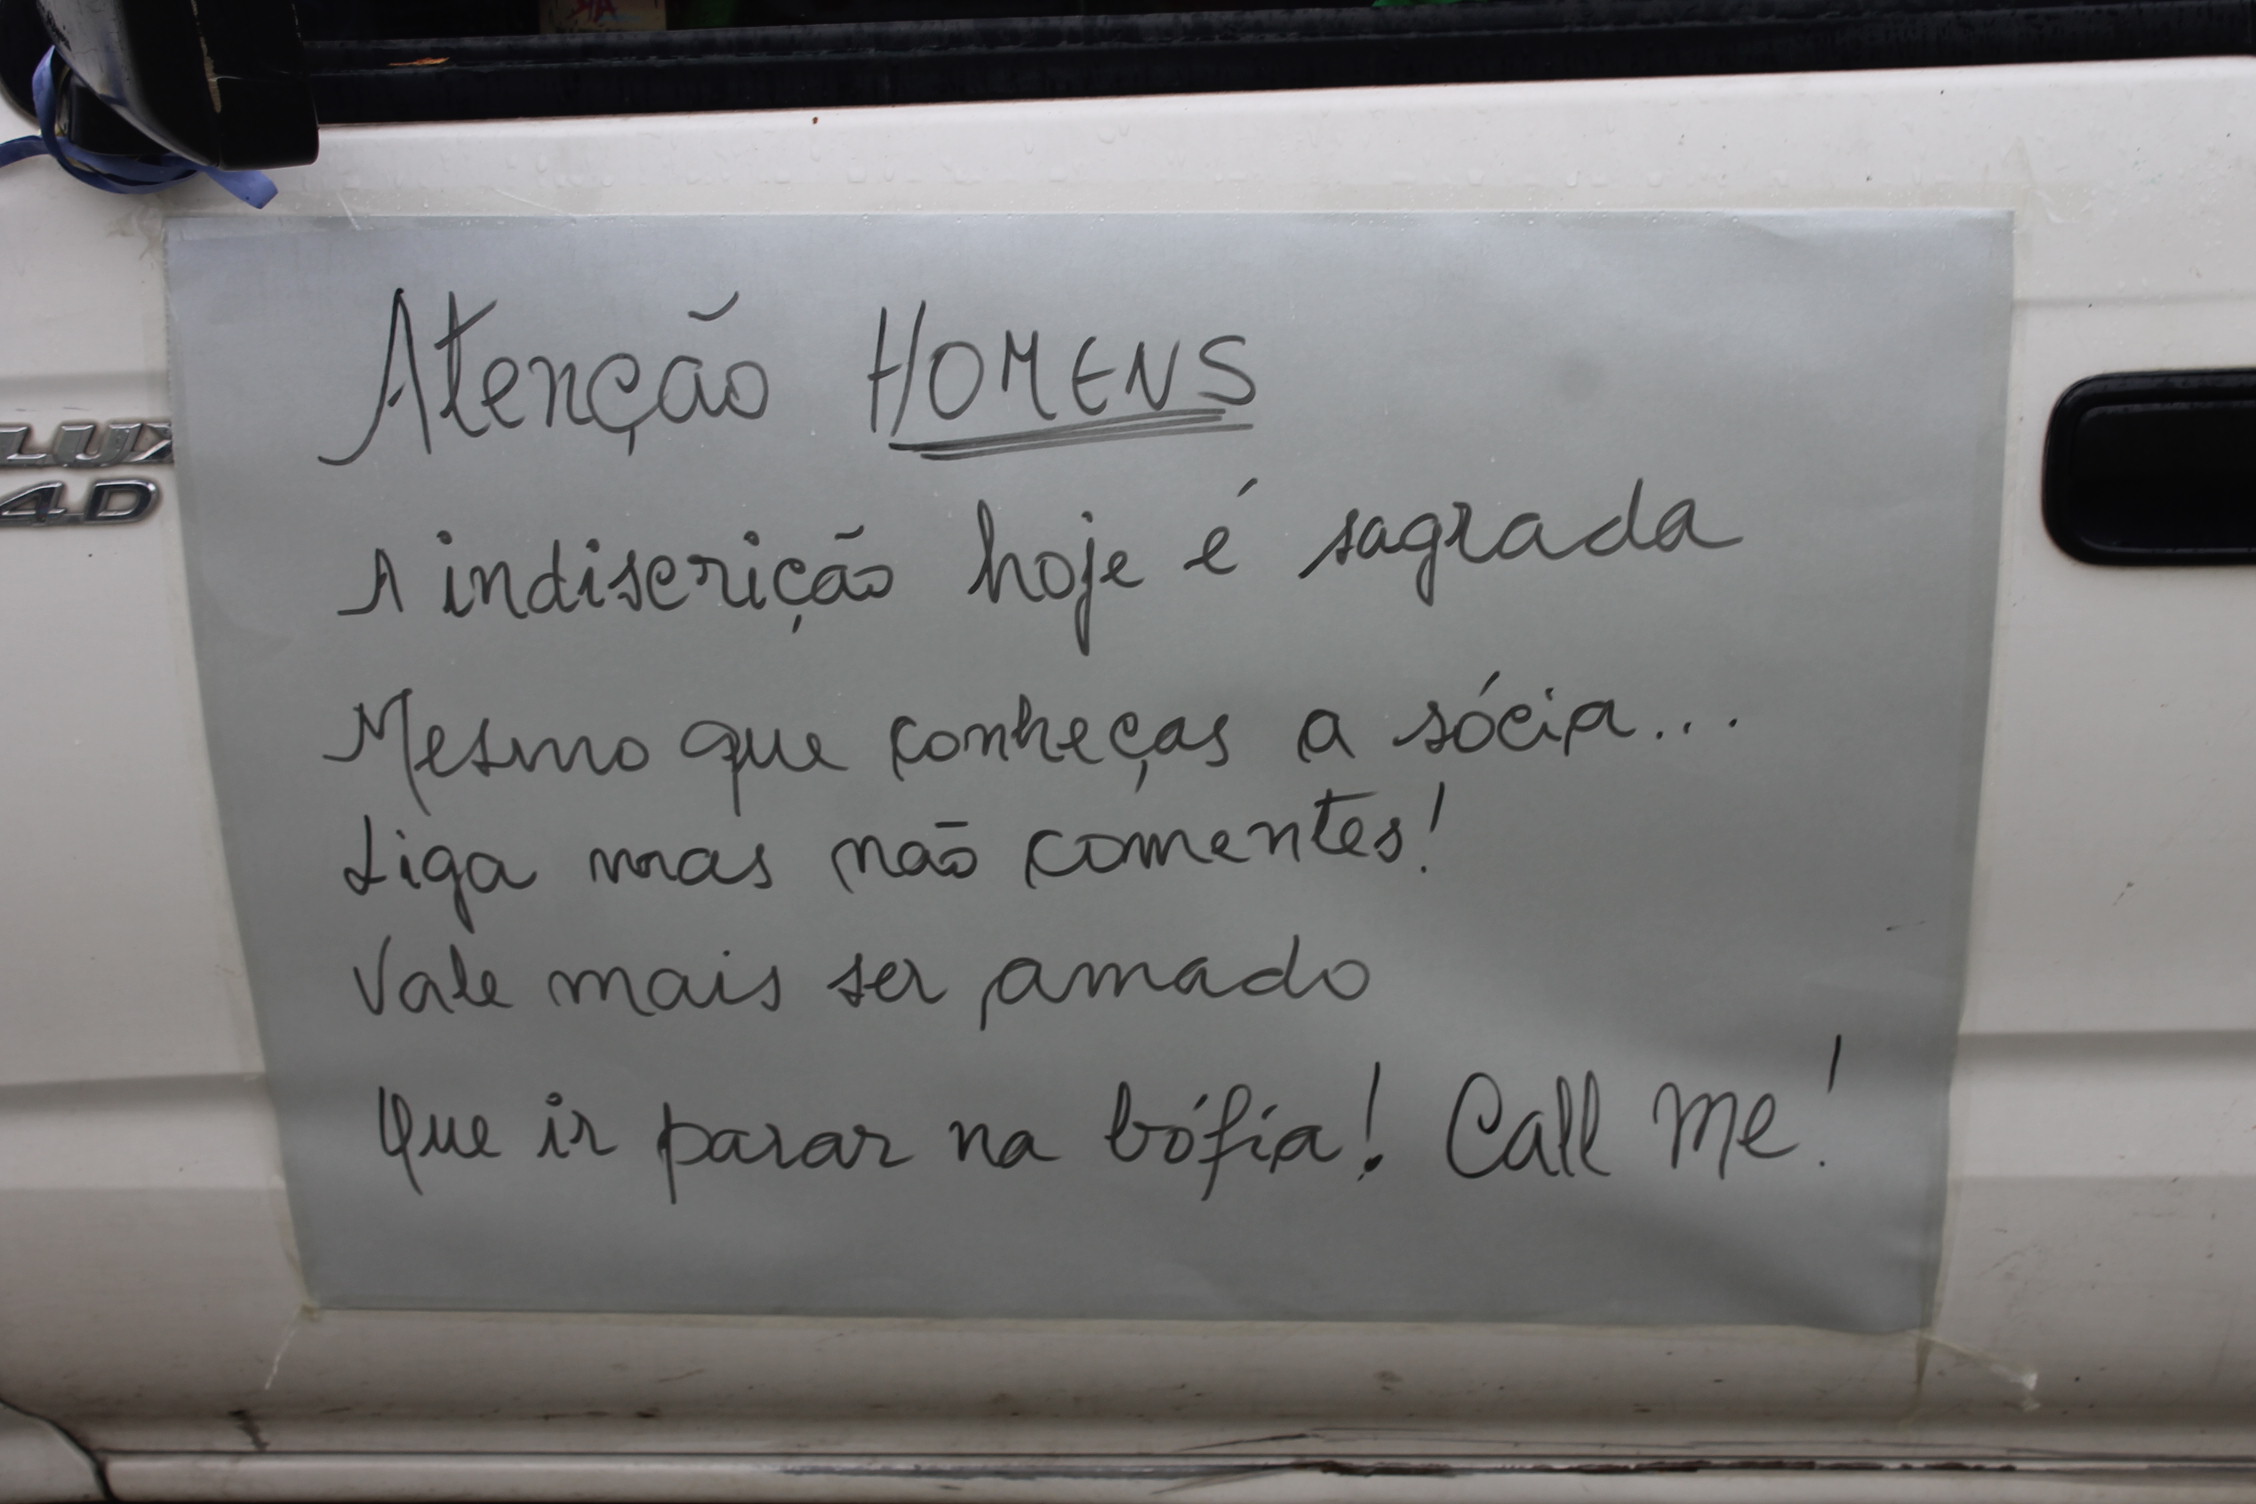 Atenção HOMENS
A indiscrição hoje é sagrada
Mesmo que conheças a sócia...
Liga mas não comentes!
Vale mais ser amado
Que ir parar na bófia! Call me!
LUX
4D